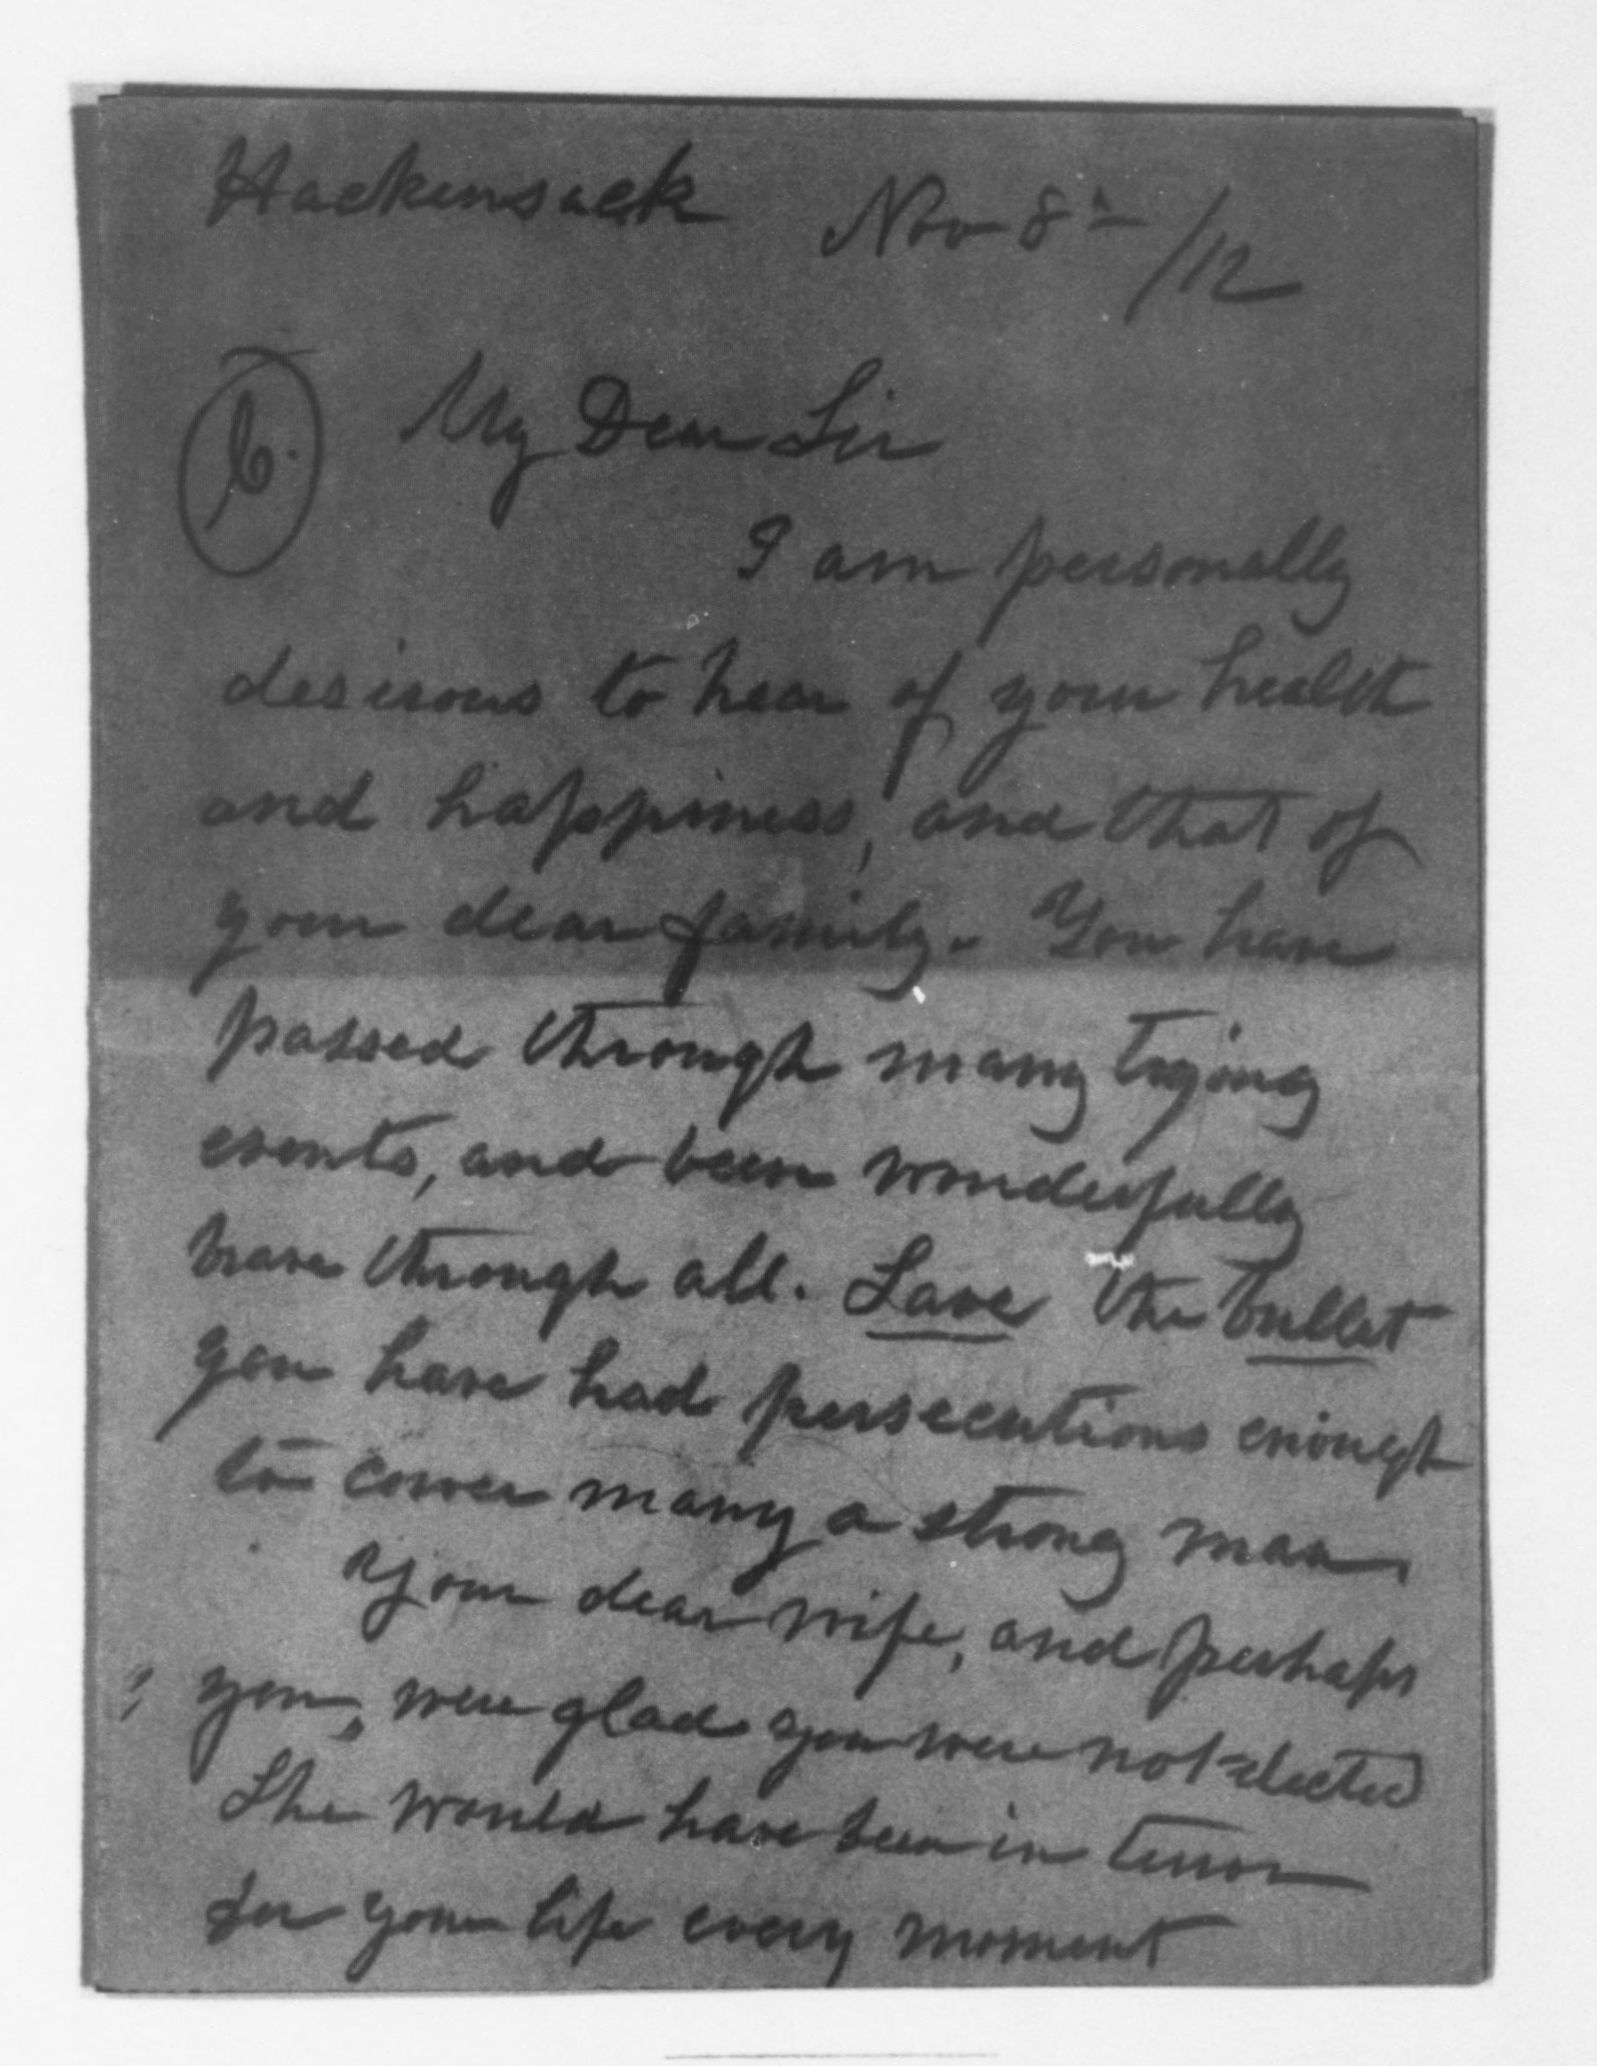 Hackensack Nov 8th /12
My Dear Sir
I am personally
desirous to hear of your health
and happiness, and that of
your dear family. You have
passed through many trying
events, and been wonderfully
brave through all. Save the bullet
you have had persecutions enough
to cower many a strong man.
Your dear wife, and perhaps
you, were glad you were not elected
She would have been in terror
for your life every moment